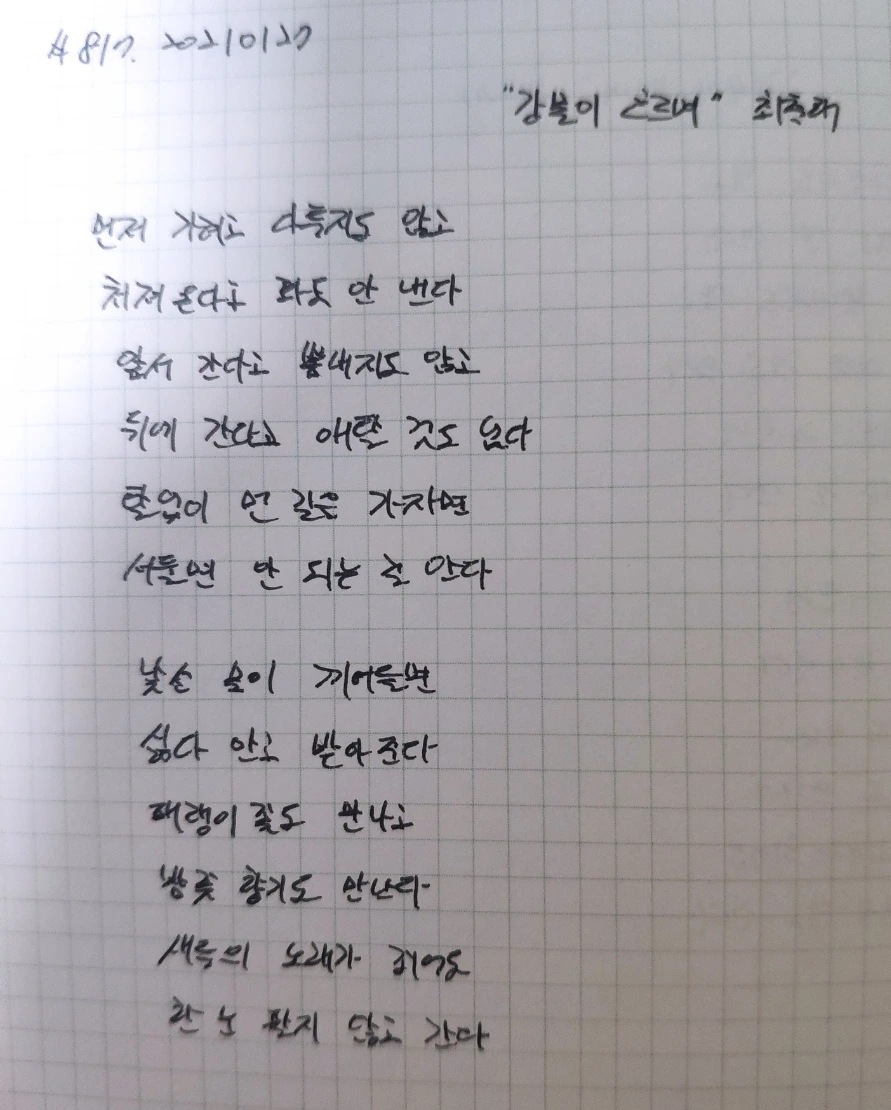 #817. 20210127
"강물이 흐르며" 최춘해
먼저 가려고 다투지도 않고
처져 온다고 화도 안 낸다
앞서 간다고 뽐내지도 않고
뒤에 간다고 애탈 것도 없다
탈없이 먼 길을 가자면
서둘면 안 되는 걸 안다
낯선 물이 끼어들면
싫다 않고 받아 준다
패랭이 꽃도 만나고
밤꽃 향기도 만난다
새들의 노래가 꾀어도
한눈 팔지 않고 간다